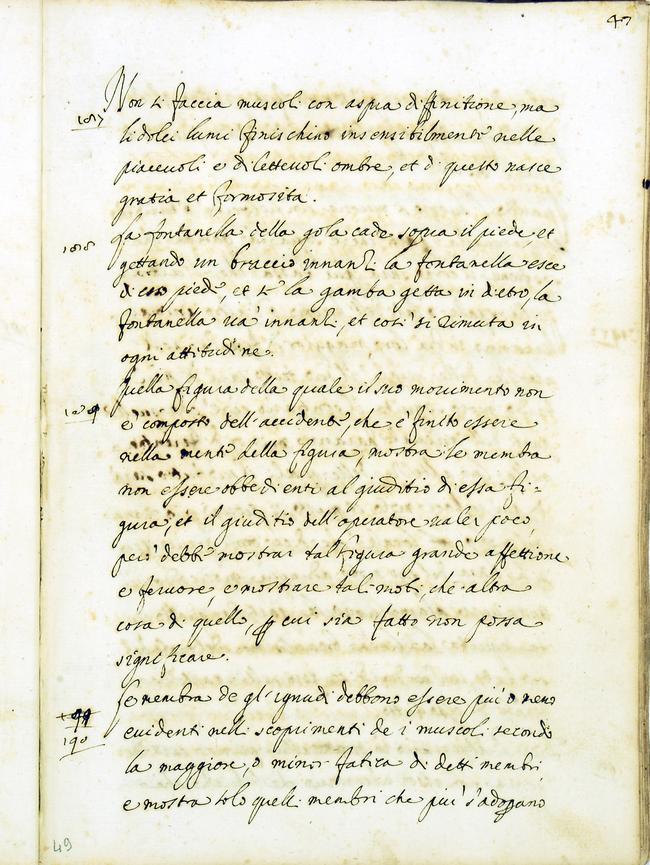 47
Non si faccia muscoli con aspra diffinitione, ma
li dolci lumi finischino insensibilmente nelle
piaceuoli e diletteuoli ombre, et di questo nasce
gratia et formosita.
La fontanella della gola cade sopra il piede, et
gettando un braccio innanzi la fontanella esce
di esso piede, et se la gamba getta in dietro, la
fontanella ua' innanzi, et cosi' si rimuta in
ogni attitudine.
Quella figura della quale il suo mouimento non
e' composto dell'accidente, che e' finto essere
nella mente della figura, mostra le membra
non essere obbedienti al giuditio di essa fi-
gura, et il giuditio dell'operatore ualer poco,
pero' debbe mostrar tal figura grande affettione
e feruore, e mostrare tali moti, che altra
cosa di quello, p cui sia fatto non possa
significare.
Le membra de gl'ignudi debbono essere piu' o meno
euidenti nelli scoprimenti de i muscoli secondo
la maggiore, o minor fatica di detti membri,
e mostra solo quelli membri che piu' s'adoprano
190
49